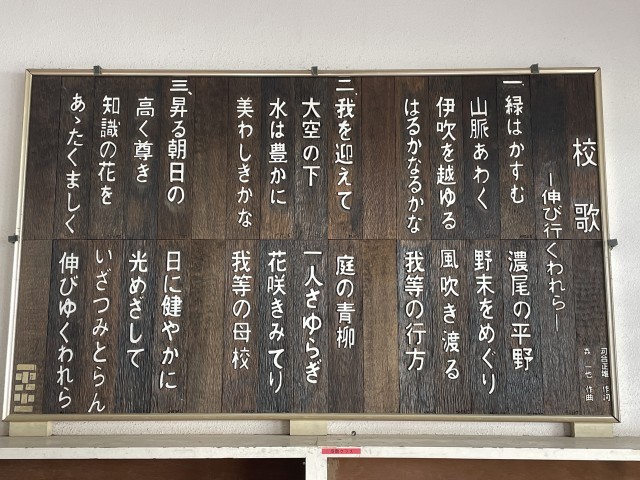 校歌
―伸び行くわれら―
河合正雄 作詞
森 一也 作曲
一、緑はかすむ 濃尾の平野
山脈あわく 野末をめぐり
伊吹を越ゆる 風吹き渡る
はるかなるかな 我等の行方
二、我を迎えて 庭の青柳
大空の下 一人さゆらぎ
水は豊かに 花咲きみてり
美わしきかな 我等の母校
三、昇る朝日の 日に健やかに
高く尊き 光めざして
知識の花を いざつみとらん
あゝたくましく 伸びゆくわれら